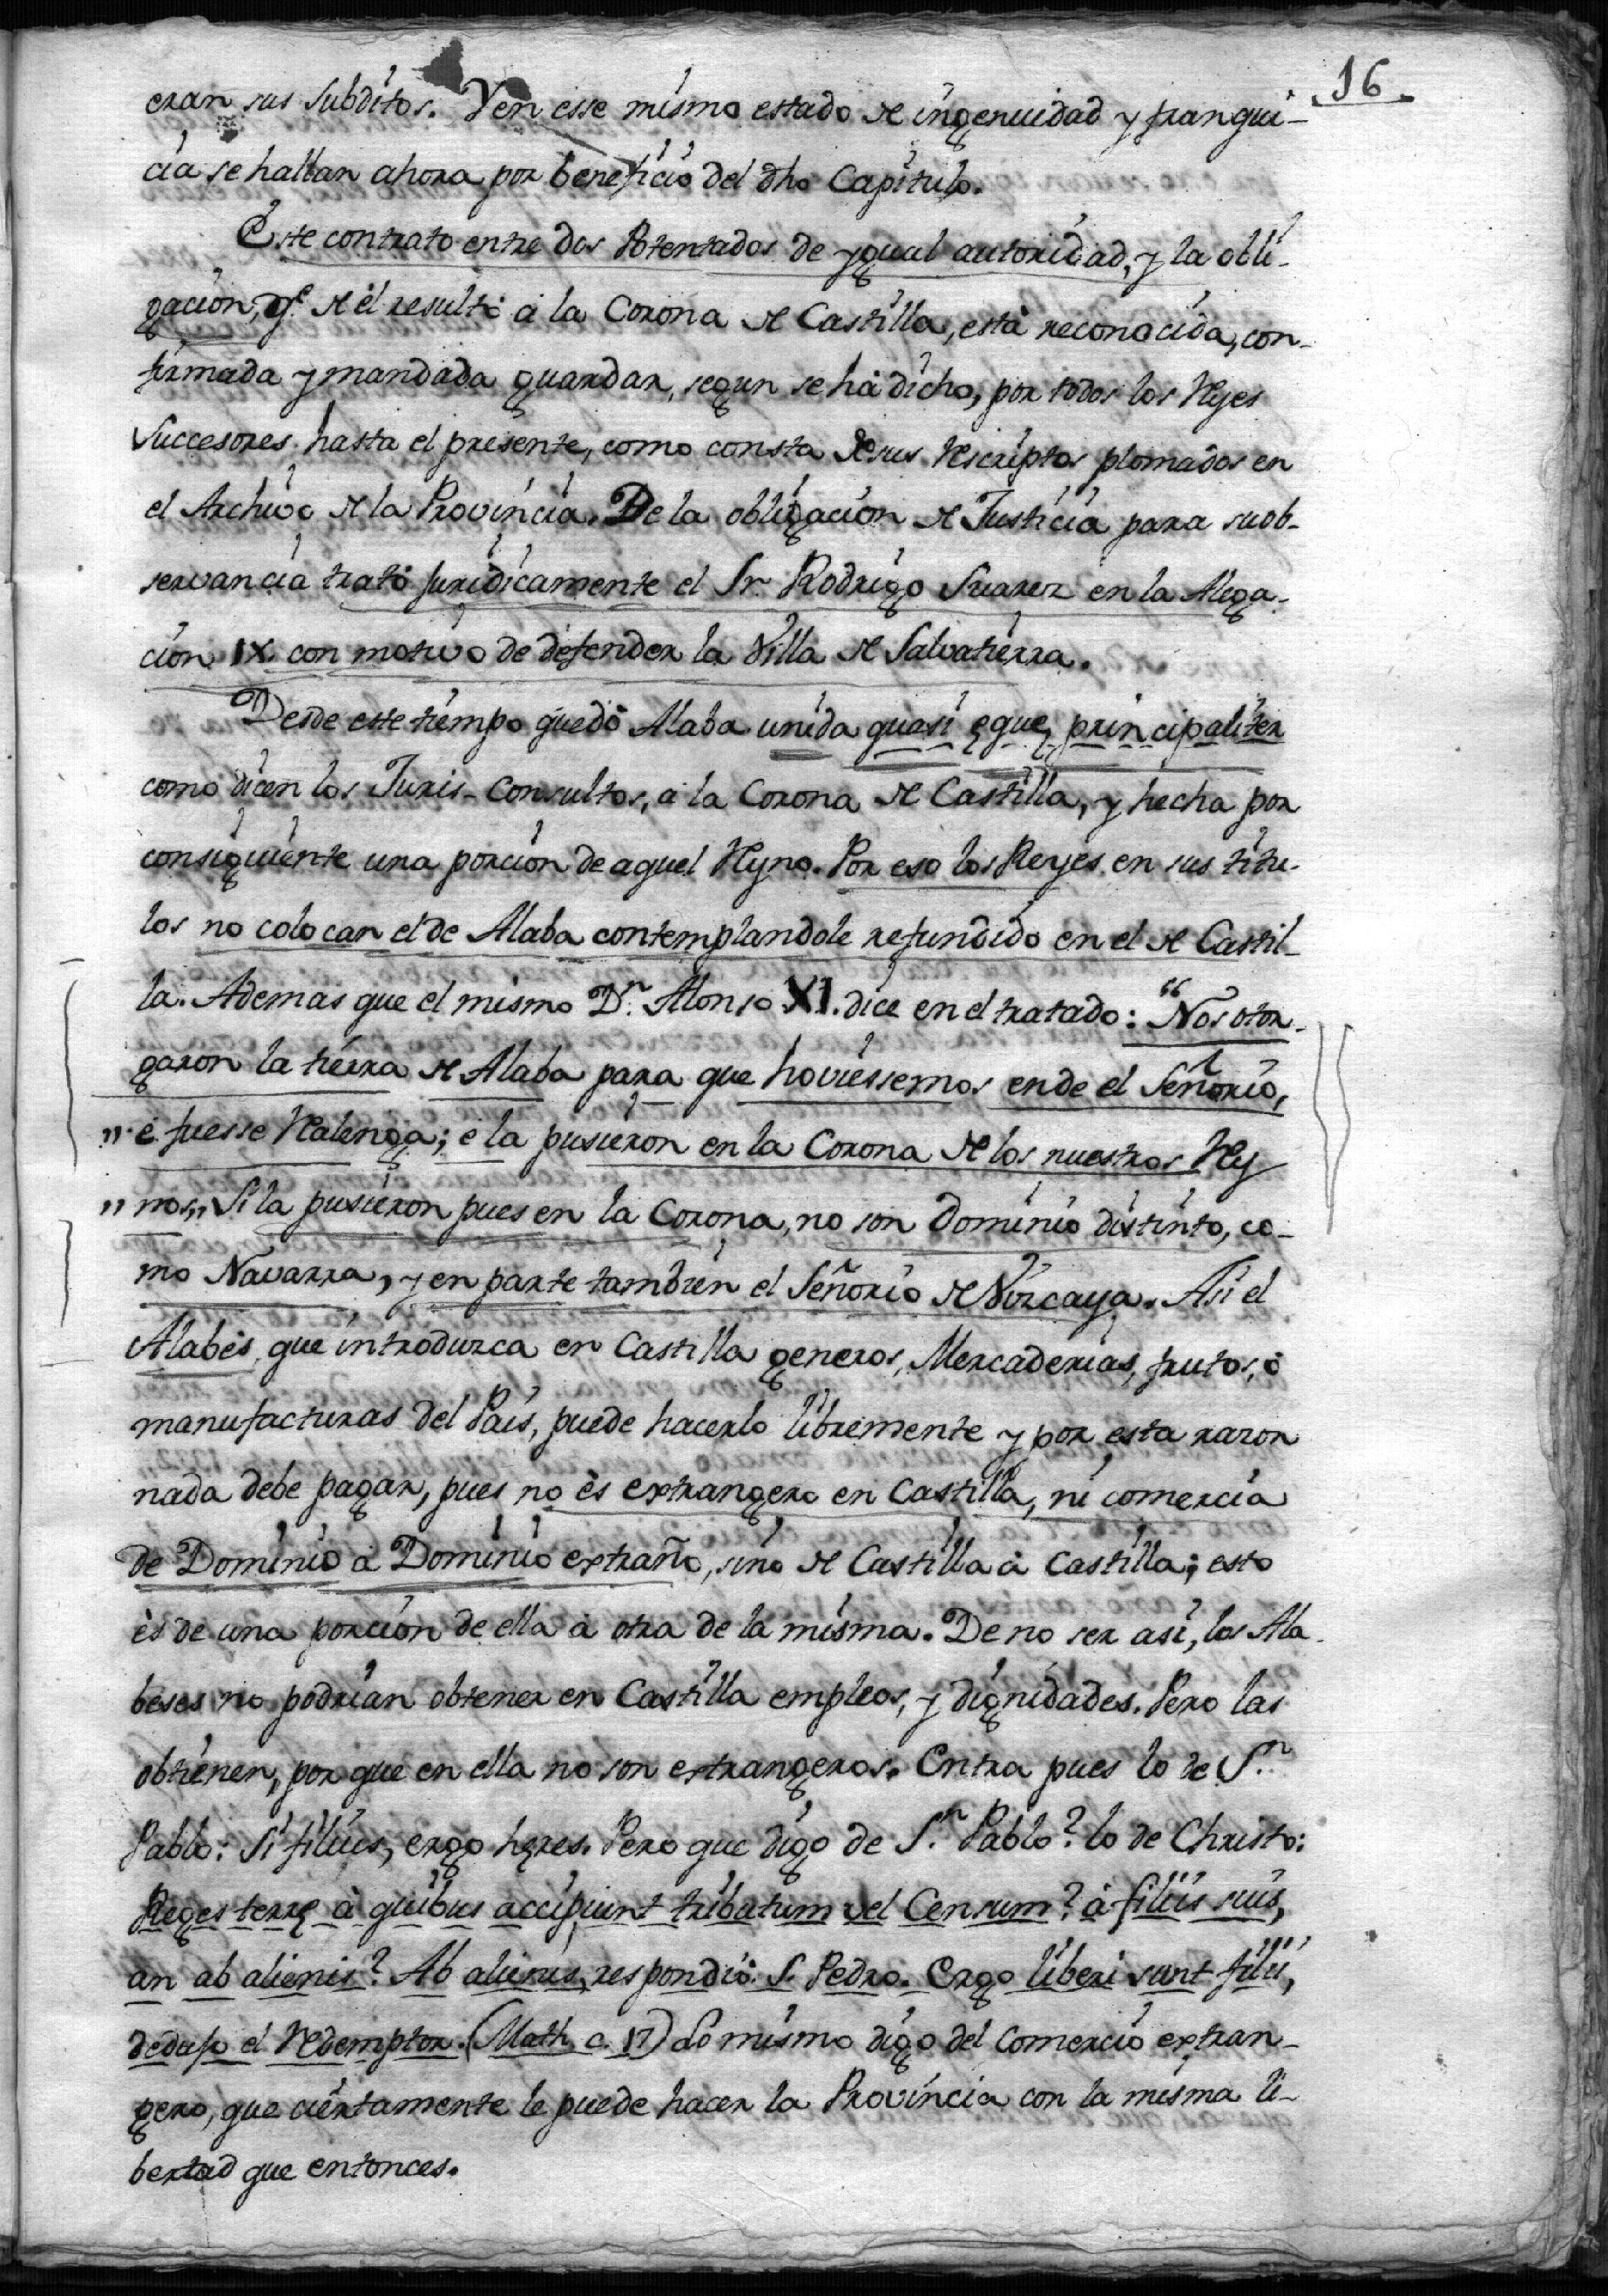 16
eran sus subditos. Y en esse mismo estado de ingenuidad y franqui-
cia se hallan ahora por beneficio del dho Capitulo.
Este contrato entre dos Potentados de ygual autoridad, y la obli-
gacion, q.e de èl resultò à la Corona de Castilla, està reconocida, con-
firmada y mandada guardar, segun se hà dicho, por todos los Reyes
Successores hasta el presente, como consta de sus Rescriptos plomados en
el Archivo de la Provincia. De la obligacion de Justicia para su ob-
servancia tratò juridicamente el Sr. Rodrigo Suarez en la Alega-
cion IX. con motivo de defender la Villa de Salvatierra.
Desde este tiempo quedò Alaba unida quasi ęquę principaliter
como dicen los Juris-Consultos, à la Corona de Castilla, y hecha por
consiguiente una porcion de aquel Reyno. Por eso los Reyes en sus titu-
los no colocan el de Alaba contemplandole refundido en el de Castil-
la. Ademas que el mismo Dn. Alonso XI. dice en el tratado: “Nos otor-
garon la tierra de Alaba para que hoviessemos ende el Señorio,
" è fuesse Realenga; è la pusieron en la Corona de los nuestros Rey
" nos,, Si la pusieron pues en la Corona, no son Dominio distinto, co-
mo Navarra, y en parte tambien el Señorio de Vizcaya. Asi el
Alabès, que introduzca en Castilla generos, Mercaderias, frutos, ò
manufacturas del Pais, puede hacerlo libremente y por esta razon
nada debe pagar, pues no ès extrangero en Castilla, ni comercia
de Dominio à Dominio extraño, sino de Castilla à Castilla; esto
ès de una porcion de ella à otra de la misma. De no ser asi, los Ala-
beses no podrian obtener en Castilla empleos, y dignidades. Pero las
obtienen, por que en ella no son extrangeros. Entra pues lo de Sn.
Pablo: Si filius, ergo hęres. Pero que digo de Sn. Pablo? lo de Christo:
Reges terrę à quibus accipiunt tributum vel Censum? à filiis suis,
an ab alienis? Ab alienis, respondiò S. Pedro. Ergo liberi sunt filii,
dedujo el Redemptor. (Math. c. 17) Lo mismo digo del Comercio extran-
gero, que ciertamente le puede hacer la Provincia con la misma li-
bertad que entonces.